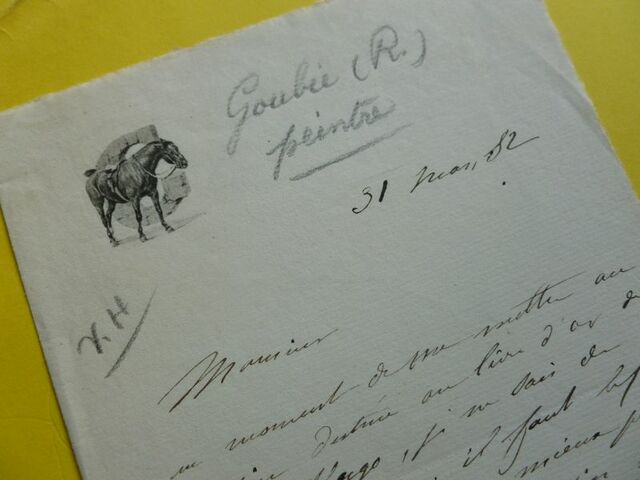 Goubie (R.)
peintre
31 mars 82
V. H
Monsieur
au moment de me mettre au
destiné au livre d'or de
Hugo, je ne sais de
il faut
mieux